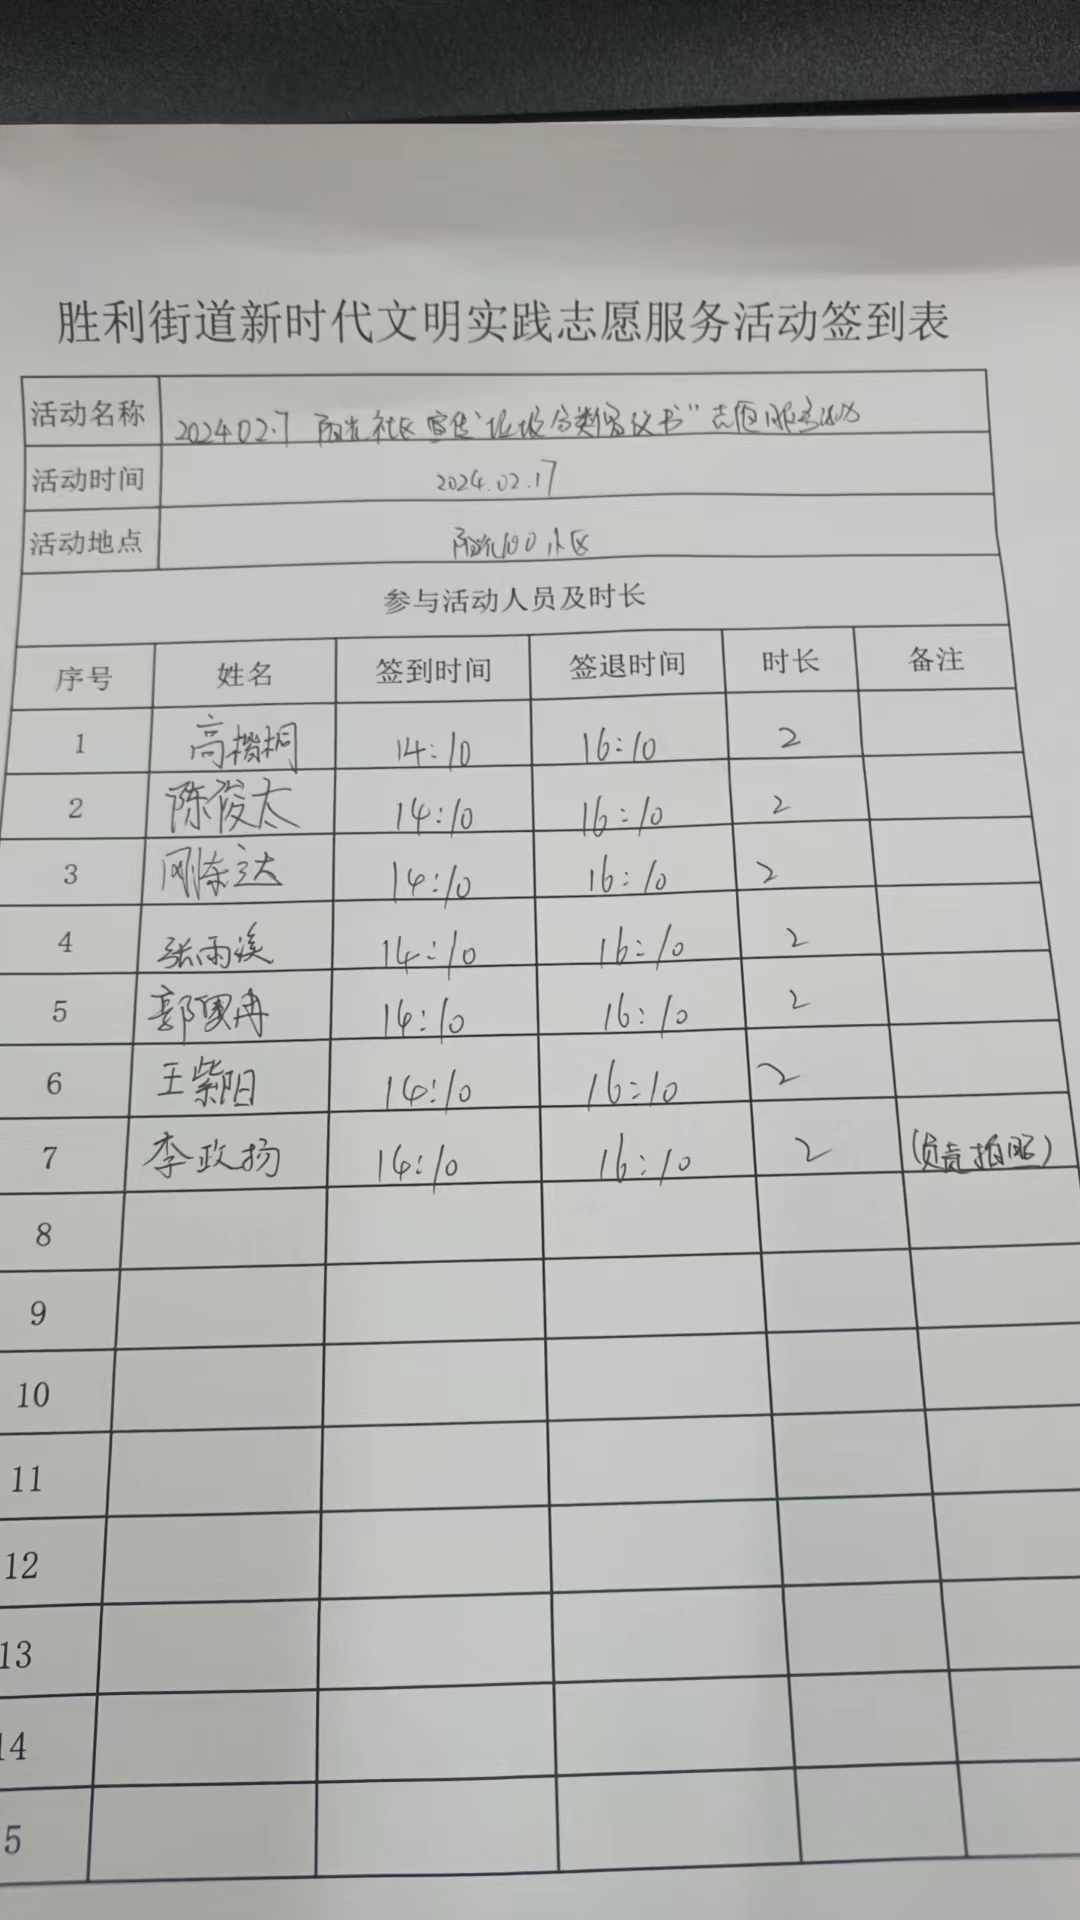 胜利街道新时代文明实践志愿服务活动签到表
活动名称 2024.02.17 阳光社区宣传"垃圾分类倡议书"志愿服务活动
活动时间 2024.02.17
活动地点 阳光100小区
参与活动人员及时长
序号 姓名 签到时间 签退时间 时长 备注
1 高楷桐 14:10 16:10 2
2 陈俊太 14:10 16:10 2
3 14:10 16:10 2
4 张雨溪 14:10 16:10 2
5 14:10 16:10 2
6 王紫阳 14:10 16:10 2
7 李政扬 14:10 16:10 2 (负责拍照)
8
9
10
11
12
13
14
5